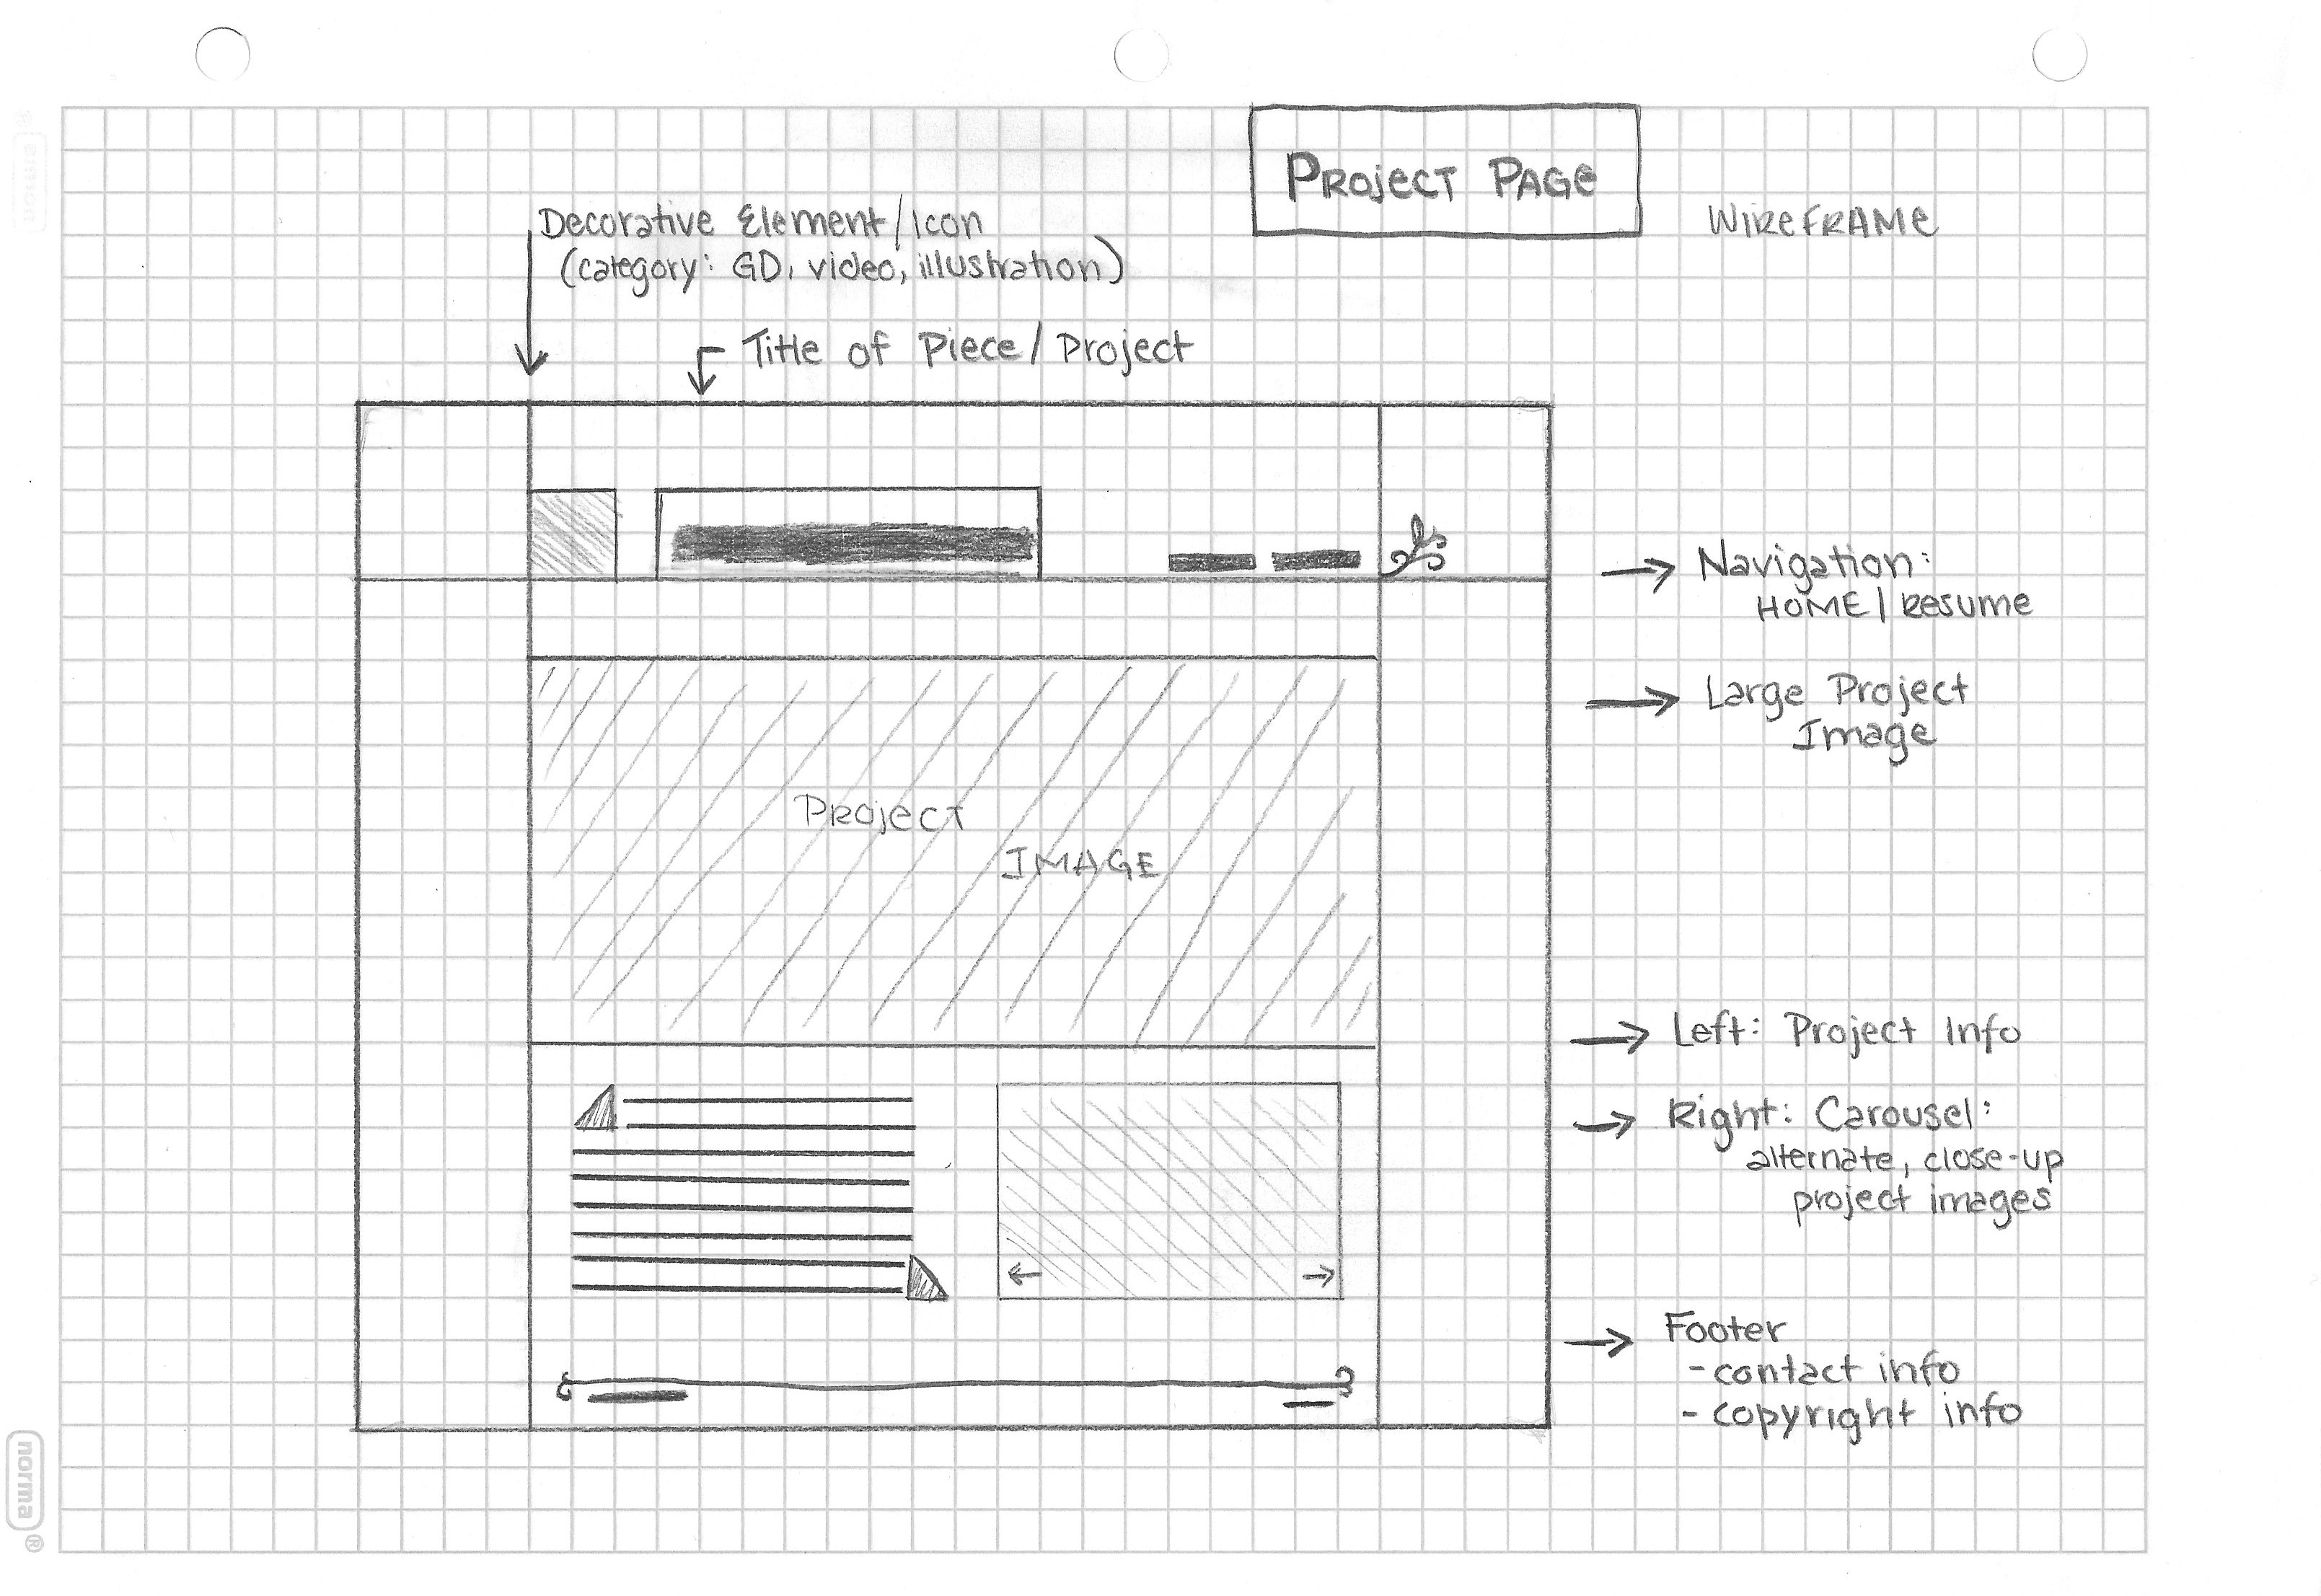 PROJECT PAGE
WIREFRAME
Decorative Element/Icon
(category: GD, video, illustration)
Title of Piece/Project
Navigation:
HOME | Resume
Large Project
Image
PROJECT
IMAGE
Left: Project Info
Right: Carousel:
alternate, close-up
project images
Footer
- contact info
- copyright info
norma®
norma